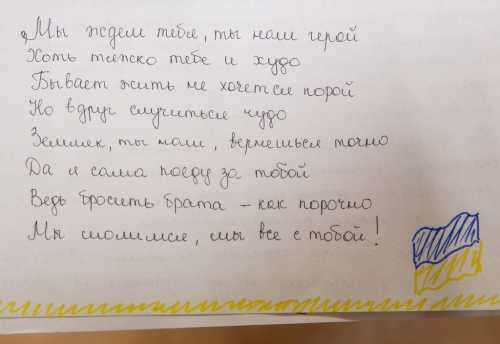 Мы ждем тебя, ты наш герой
Хоть тяжко тебе и худо
Бывает жить не хочется порой
Но вдруг случиться чудо
Земляк, ты наш, вернешься точно
Да я сама поеду за тобой
Ведь бросить брата - как порочно
Мы молимся, мы все с тобой!